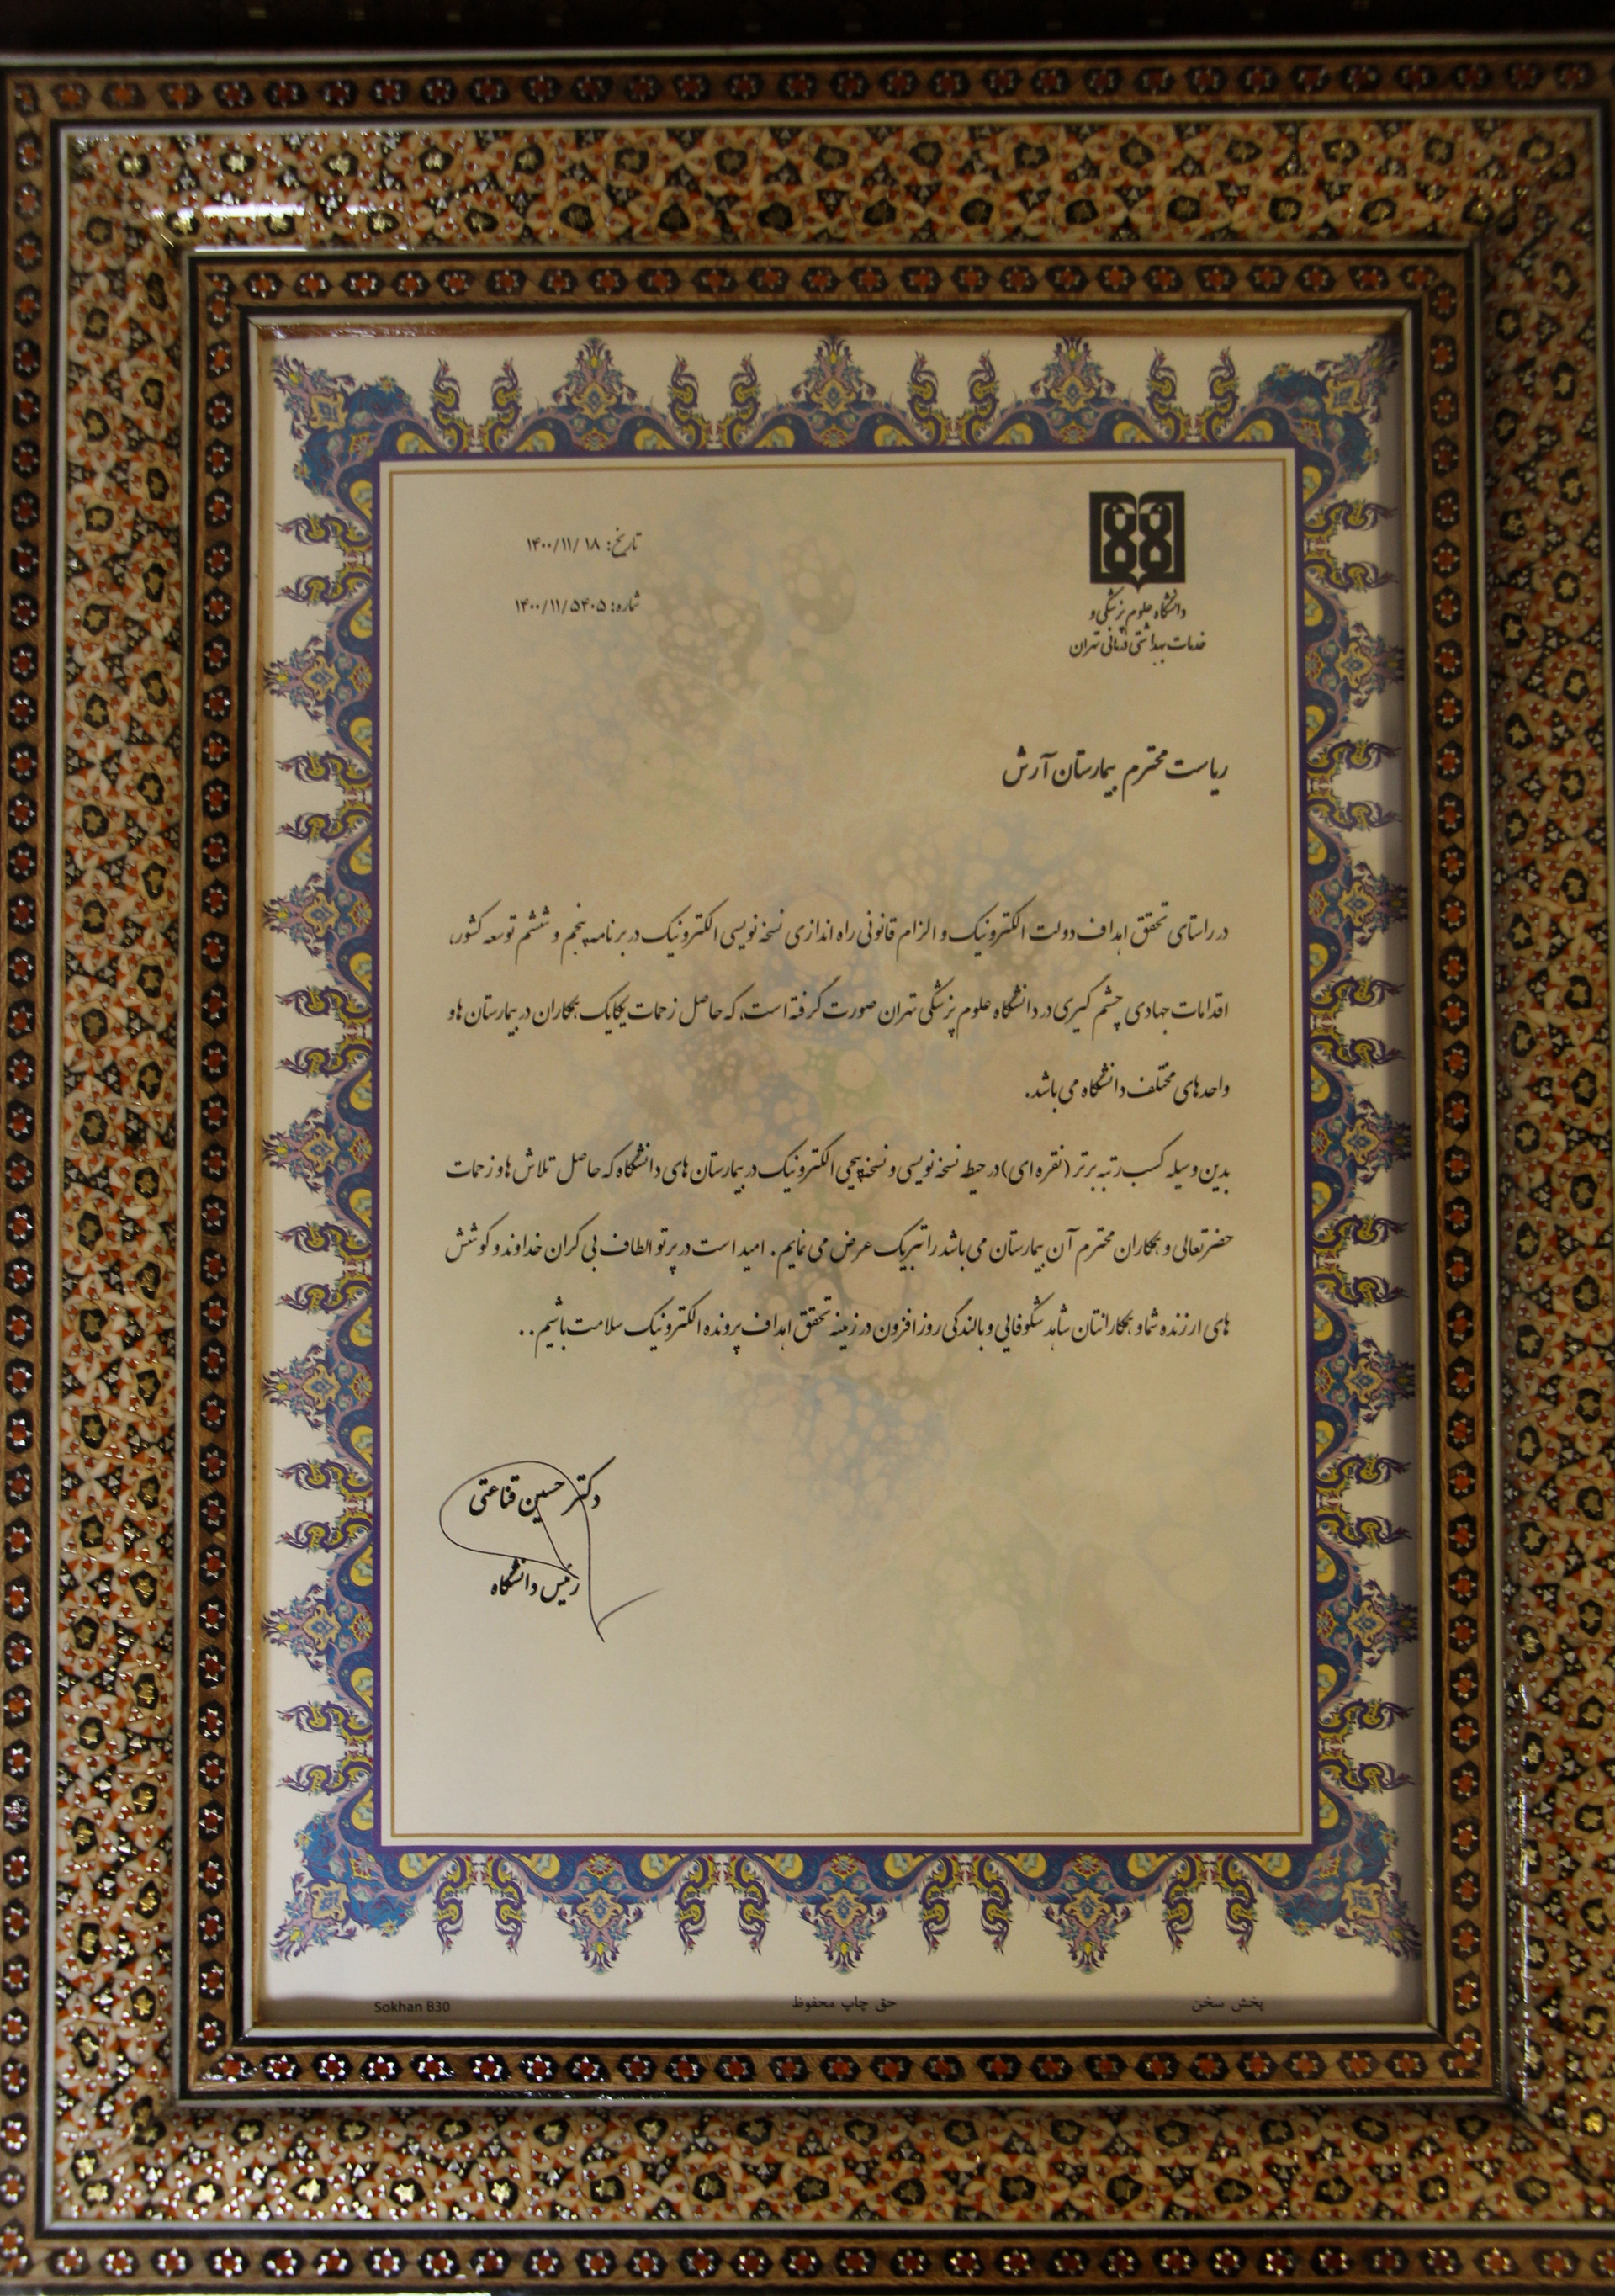 دانشگاه علوم پزشکی و
خدمات بهداشتی درمانی تهران
تاریخ: ۱۴۰۰/۱۱/۱۸
شماره: ۱۴۰۰/۱۱/۵۴۰۵
ریاست محترم بیمارستان آرش
در راستای تحقق اهداف دولت الکترونیک و الزام قانونی راه اندازی نسخه نویسی الکترونیک در برنامه پنجم و ششم توسعه کشور،
اقدامات جهادی چشم گیری در دانشگاه علوم پزشکی تهران صورت گرفته است، که حاصل زحمات یکایک همکاران در بیمارستان ها و
واحدهای مختلف دانشگاه می باشد.
بدین وسیله کسب رتبه برتر (نقره ای) در حیطه نسخه نویسی و نسخه پیچی الکترونیک در بیمارستان های دانشگاه که حاصل تلاش ها و زحمات
حضرتعالی و همکاران محترم آن بیمارستان می باشد را تبریک عرض می نمایم. امید است در پرتو الطاف بی کران خداوند و کوشش
های ارزنده شما و همکارانتان شاهد شکوفایی و بالندگی روز افزون در زمینه تحقق اهداف پرونده الکترونیک سلامت باشیم..
دکتر حسین قناعتی
رئیس دانشگاه
پخش سخن
حق چاپ محفوظ
Sokhan B30